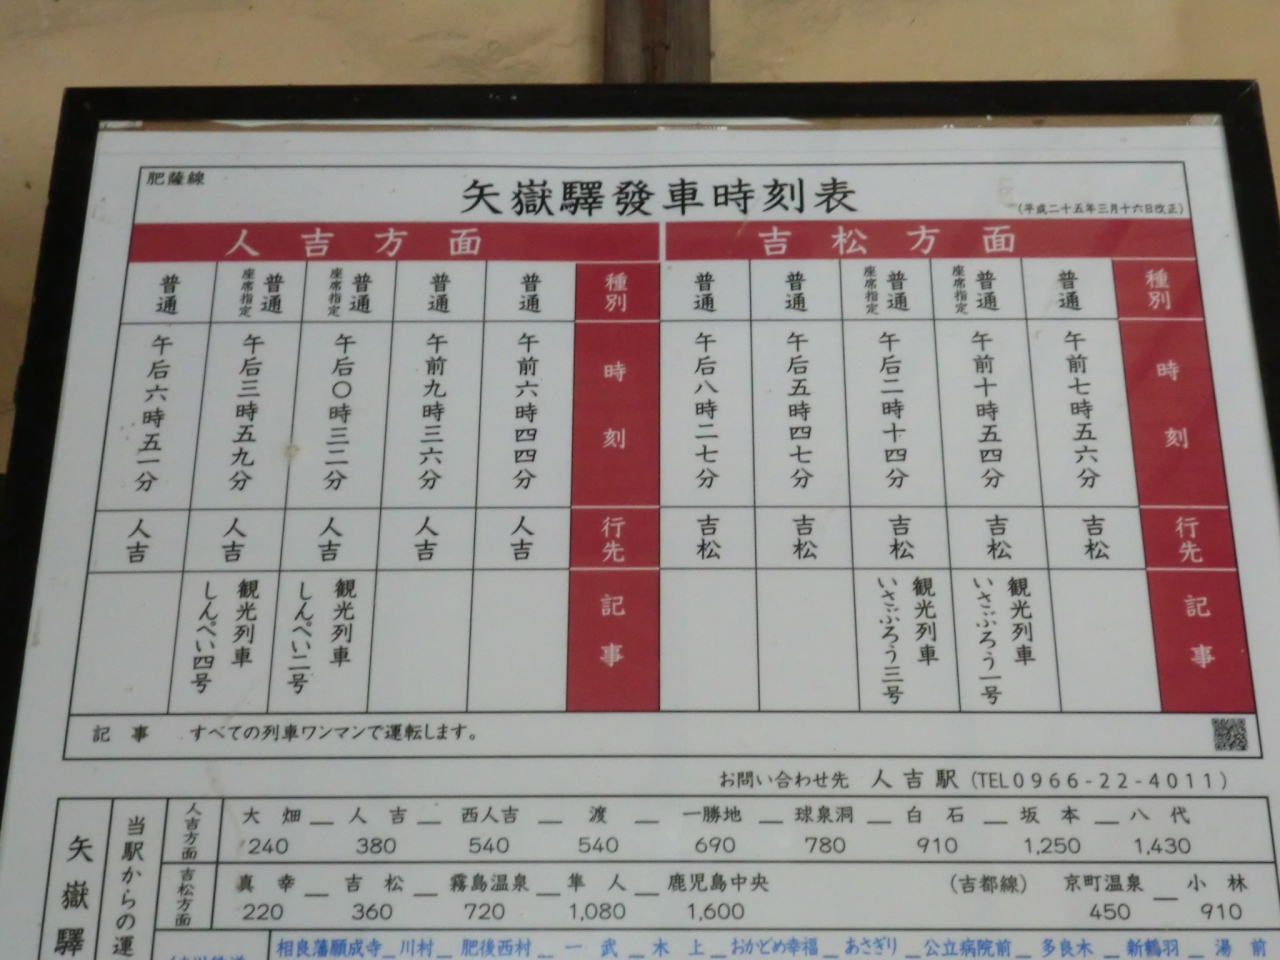 肥薩線
矢嶽驛發車時刻表
(平成二十五年三月十六日改正)
吉松方面
種別 時刻 行先 記事
普通 午前七時五六分 吉松
普通 座席指定 午前十時五四分 吉松 観光列車 いさぶろう一号
普通 座席指定 午后二時十四分 吉松 観光列車 いさぶろう三号
普通 午后五時四七分 吉松
普通 午后八時二七分 吉松
人吉方面
種別 時刻 行先 記事
普通 午前六時四四分 人吉
普通 午前九時三六分 人吉
普通 座席指定 午后〇時三二分 人吉 観光列車 しんぺい二号
普通 座席指定 午后三時五九分 人吉 観光列車 しんぺい四号
普通 午后六時五一分 人吉
記事 すべての列車ワンマンで運転します。
お問い合わせ先 人吉駅(TEL0966-22-4011)
矢嶽驛
当駅からの運
人吉方面
大畑 人吉 西人吉 渡 一勝地 球泉洞 白石 坂本 八代
240 380 540 540 690 780 910 1,250 1,430
吉松方面
真幸 吉松 霧島温泉 隼人 鹿児島中央 (吉都線) 京町温泉 小林
220 360 720 1,080 1,600 450 910
相良藩願成寺 川村 肥後西村 一武 木上 おかどめ幸福 あさぎり 公立病院前 多良木 新鶴羽 湯前